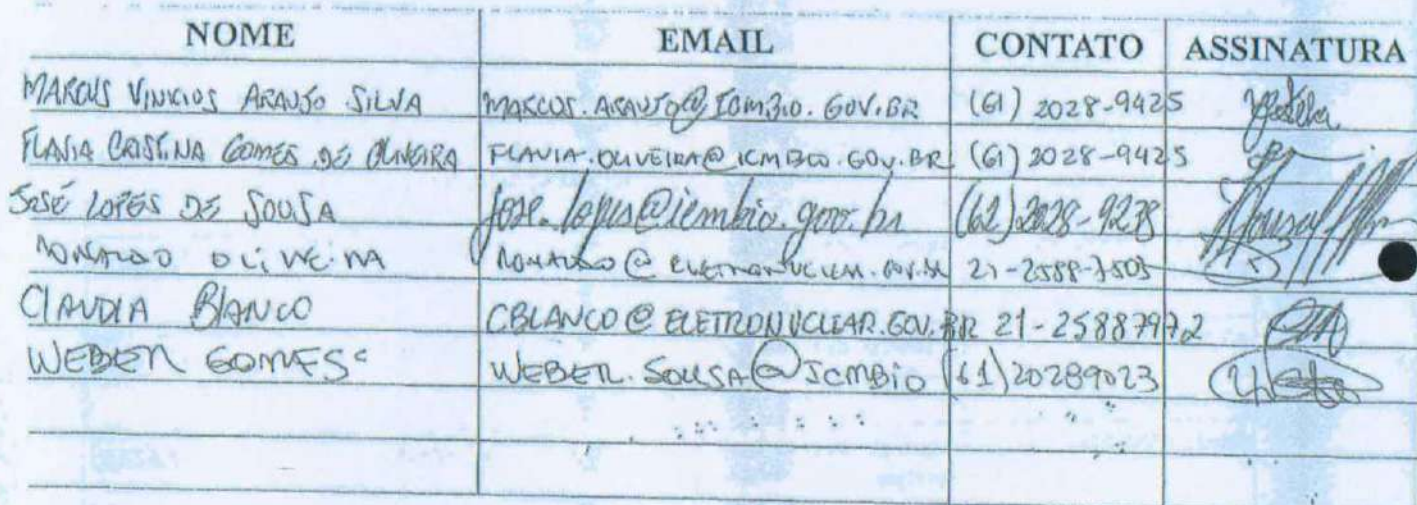 NOME EMAIL CONTATO ASSINATURA
MARCUS VINICIOS ARAUJO SILVA MARCUS.ARAUJO@ICMBIO.GOV.BR (61) 2028-9425
FLAVIA CRISTINA GOMES DE OLIVEIRA FLAVIA.OLIVEIRA@ICMBIO.GOV.BR (61) 2028-9425
JOSÉ LOPES DE SOUSA jose.lopes@icmbio.gov.br (62) 2028-9278
RONALDO OLIVEIRA RONALDO@ELETRONUCLEAR.GOV.BR 21-2588-7503
CLAUDIA BLANCO CBLANCO@ELETRONUCLEAR.GOV.BR 21-25887972
WEBER GOMES WEBER.SOUSA@ICMBio (61) 20289023